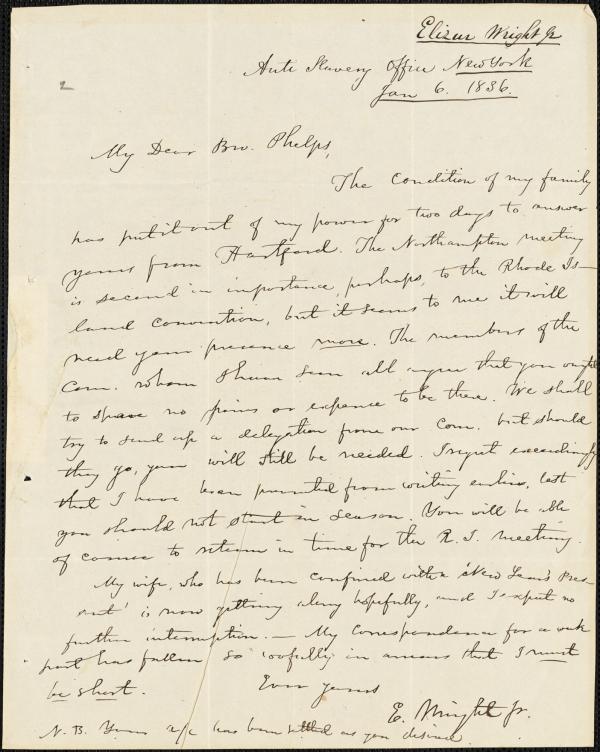 Elizur Wright Jr
Anti Slavery Office New York
Jan 6. 1836.
2
My Dear Bro. Phelps,
The condition of my family
has put it out of my power for two days to answer
yours from Hartford. The Northampton meeting
is second in importance, perhaps, to the Rhode Is-
land convention, but it seems to me it will
need your presence more. The members of the
Com. whom I have seen all agree that you ought
to spare no pains or expence to be there. We shall
try to send up a delegation from our Com. but should
they go, you will still be needed. I regret exceedingly
that I have been prevented from writing earlier, lest
you should not start in season. You will be able
of course to return in time for the R. I. meeting.
My wife, who has been confined with a 'New Years Pres-
ent' is now getting along hopefully, and I expect no
further interruption. — My correspondence for a week
past has fallen so woefully in arrears that I must
be short.
Ever yours
E. Wright Jr.
N. B. Your a/c has been settled as you desired